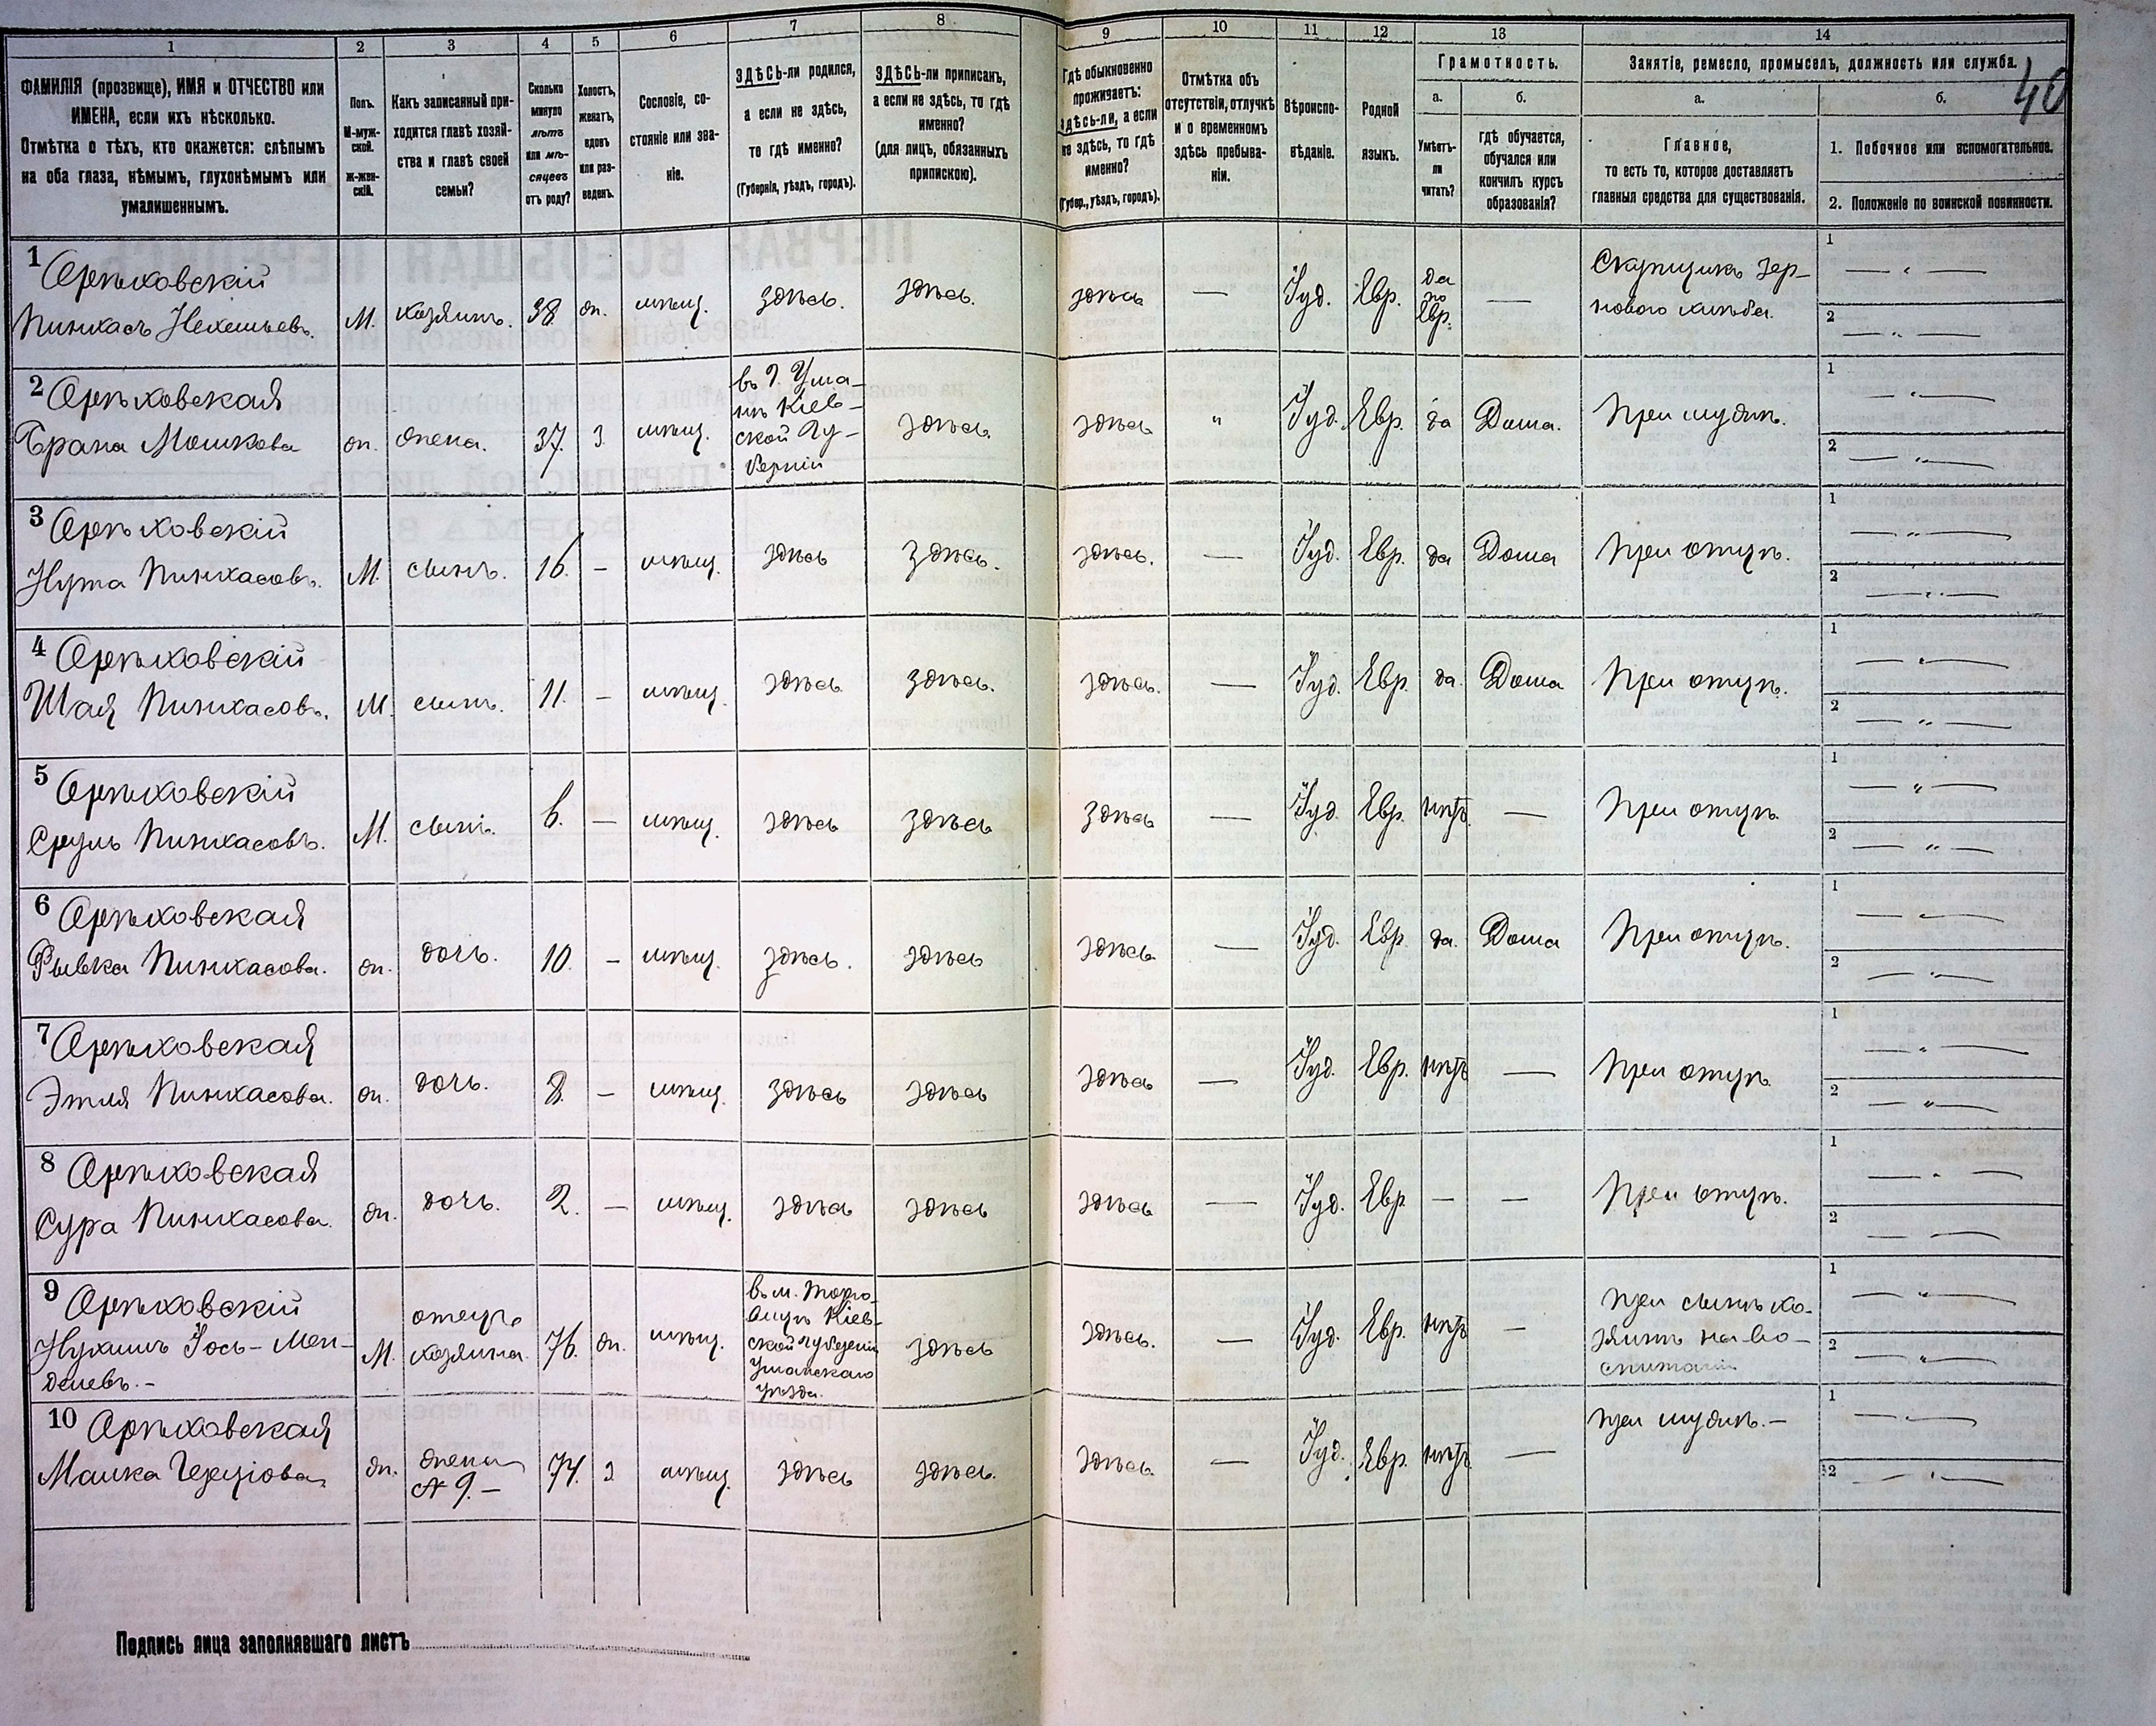 1
2
3
4
5
6
7
8
9
10
11
12
13
14
40
ФАМИЛІЯ (прозвище), ИМЯ и ОТЧЕСТВО или
ИМЕНА, если ихъ нѣсколько.
Отмѣтка о тѣхъ, кто окажется: слѣпымъ
на оба глаза, нѣмымъ, глухонѣмымъ или
умалишеннымъ.
Полъ.
М-муж-
ской.
ж-жен-
скій.
Какъ записанный при-
ходится главѣ хозяй-
ства и главѣ своей
семьи?
Сколько
минуло
лѣтъ
или мѣ-
сяцевъ
отъ роду?
Холостъ,
женатъ,
вдовъ
или раз-
веденъ.
Сословіе, со-
стояніе или зва-
ніе.
ЗДѢСЬ-ли родился,
а если не здѣсь,
то гдѣ именно?
(Губернія, уѣздъ, городъ).
ЗДѢСЬ-ли приписан,
а если не здѣсь, то гдѣ
именно?
(для лицъ, обязанныхъ
припискою).
Гдѣ обыкновенно
проживаетъ:
здѣсь-ли, а если
не здѣсь, то гдѣ
именно?
(Губер., уѣздъ, городъ).
Отмѣтка объ
отсутствіи, отлучкѣ
и о временномъ
здѣсь пребыва-
ніи.
Вѣроиспо-
вѣданіе.
Родной
языкъ.
Грамотность.
а.
Умѣетъ-
ли
читать?
б.
гдѣ обучается,
обучался или
кончилъ курсъ
образованія?
Занятіе, ремесло, промыселъ, должность или служба.
а.
Главное,
то есть то, которое доставляетъ
главныя средства для существованія.
б.
1. Побочное или вспомогательное.
2. Положеніе по воинской повинности.
1 Орѣховскій
Пинхасъ Нехемьевъ. М. хозяинъ. 38. ж. мѣщ. здѣсь. здѣсь. здѣсь — Іуд. Евр. да по Евр. — Скупщикъ зер-
нового хлѣба.
1 — " —
2 — " —
2 Орѣховская
Брана Мошкова ж. жена. 37. З. мѣщ. въ г. Ума-
нѣ Кіев-
ской Гу-
берніи
здѣсь. здѣсь " Іуд. Евр. да Дома. При мужѣ.
1 — " —
2 — " —
3 Орѣховскій
Нута Пинхасовъ. М. сынъ. 16. — мѣщ. здѣсь здѣсь. здѣсь. — Іуд. Евр. да Дома При отцѣ.
1 — " —
2 — " —
4 Орѣховскій
Шая Пинхасовъ. М. сынъ. 11. — мѣщ. здѣсь здѣсь. здѣсь. — Іуд. Евр. да. Дома При отцѣ.
1 — " —
2 — " —
5 Орѣховскій
Сруль Пинхасовъ. М. сынъ. 6. — мѣщ. здѣсь здѣсь здѣсь — Іуд. Евр. нѣтъ. — При отцѣ.
1 — " —
2 — " —
6 Орѣховская
Рывка Пинхасова. ж. дочь. 10. — мѣщ. здѣсь. здѣсь здѣсь — Іуд. Евр. да. Дома При отцѣ.
1 — " —
2 — " —
7 Орѣховская
Этля Пинхасова. ж. дочь. 8. — мѣщ. здѣсь здѣсь здѣсь — Іуд. Евр. нѣтъ — При отцѣ
1 — " —
2 — " —
8 Орѣховская
Сура Пинхасова. ж. дочь. 2. — мѣщ. здѣсь здѣсь здѣсь — Іуд. Евр — — При отцѣ.
1 — " —
2 — —
9 Орѣховскій
Нухимъ Іось-Мен-
делевъ.- М. отецъ
хозяина. 76. ж. мѣщ. въ м. Торго-
вицѣ Кіев-
ской Губерніи
Уманскаго
уѣзда.
здѣсь здѣсь. — Іуд. Евр. нѣтъ — при сынѣ хо-
зяинѣ на во-
спитаніи
1 — " —
2 — " —
10 Орѣховская
Малка ж. жена
№ 9.— 74. З мѣщ. здѣсь здѣсь. здѣсь. — Іуд. Евр. нѣтъ — при мужѣ.—
1 — " —
2 — " —
Подпись лица заполнявшаго листъ